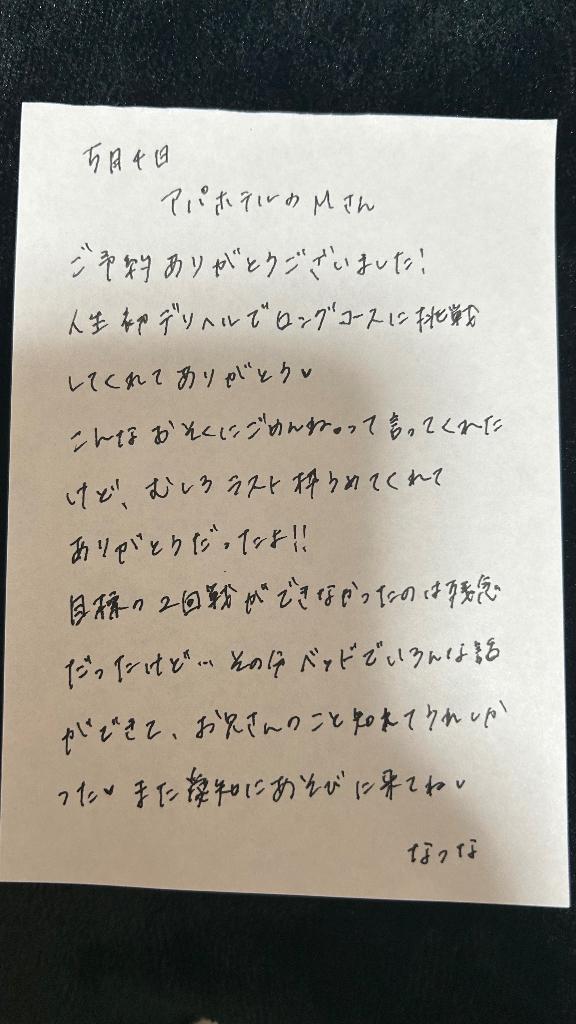 5月4日
アパホテルのMさん
ご予約ありがとうございました!
人生初デリヘルでロングコースに挑戦
してくれてありがとう♥
こんなおそくにごめんね。って言ってくれた
けど、むしろラスト枠うめてくれて
ありがとうだったよ!!
目標の2回戦ができなかったのは残念
だったけど… その分ベッドでいろんな話
ができて、お兄さんのこと知れてうれしか
った♥ また愛知にあそびに来てね♥
なつな